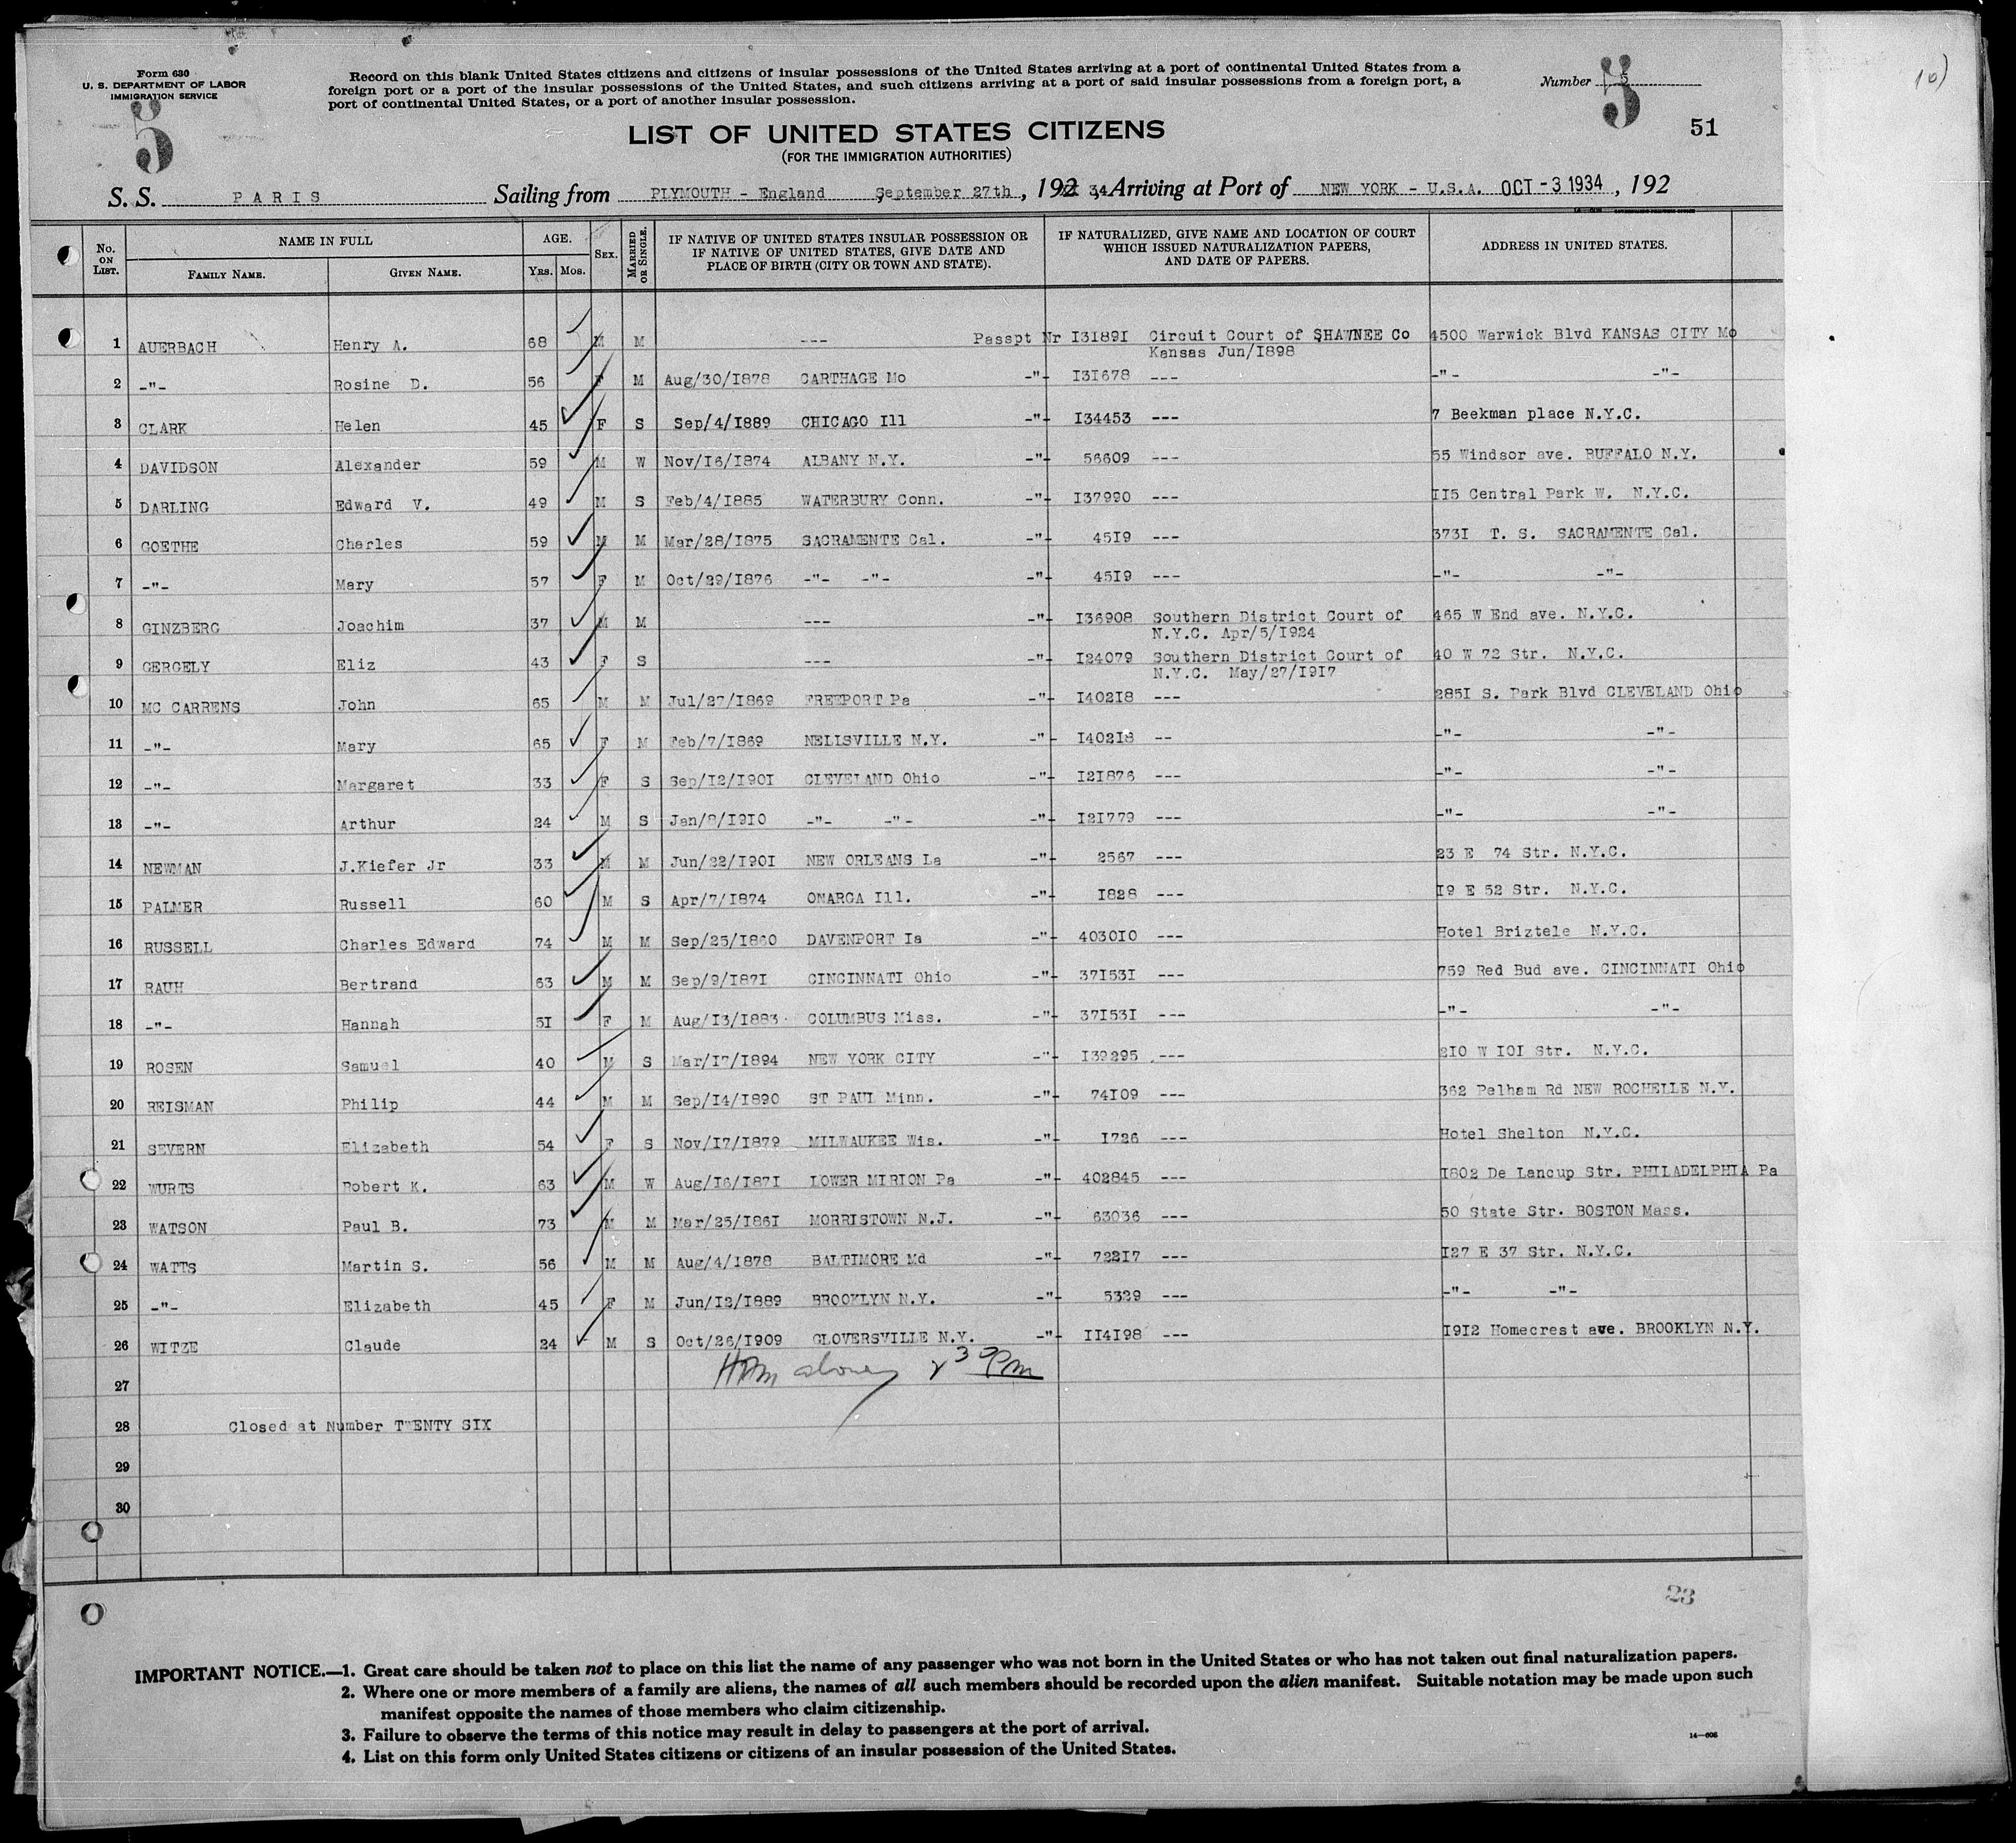 Form 630
U. S. DEPARTMENT OF LABOR
IMMIGRATION SERVICE
5
Record on this blank United States citizens and citizens of insular possessions of the United States arriving at a port of continental United States from a
foreign port or a port of the insular possessions of the United States, and such citizens arriving at a port of said insular possessions from a foreign port, a
port of continental United States, or a port of another insular possession.
Number 5
5
51
10)
LIST OF UNITED STATES CITIZENS
(FOR THE IMMIGRATION AUTHORITIES)
S. S. PARIS Sailing from PLYMOUTH - England September 27th, 192 34 Arriving at Port of NEW YORK - U.S.A. OCT - 3 1934, 192
No. ON LIST. NAME IN FULL FAMILY NAME. GIVEN NAME. AGE. YRS. MOS. SEX. MARRIED OR SINGLE. IF NATIVE OF UNITED STATES INSULAR POSSESSION OR IF NATIVE OF UNITED STATES, GIVE DATE AND PLACE OF BIRTH (CITY OR TOWN AND STATE). IF NATURALIZED, GIVE NAME AND LOCATION OF COURT WHICH ISSUED NATURALIZATION PAPERS, AND DATE OF PAPERS. ADDRESS IN UNITED STATES.
1 AUERBACH Henry A. 68 M M --- Passpt Nr I3I89I Circuit Court of SHAWNEE Co 4500 Warwick Blvd KANSAS CITY Mo
Kansas Jun/I898
2 -"- Rosine D. 56 F M Aug/30/I878 CARTHAGE Mo -"- I3I678 --- -"- -"-
3 CLARK Helen 45 F S Sep/4/I889 CHICAGO Ill -"- I34453 --- 7 Beekman place N.Y.C.
4 DAVIDSON Alexander 59 M W Nov/I6/I874 ALBANY N.Y. -"- 56609 --- 55 Windsor ave. BUFFALO N.Y.
5 DARLING Edward V. 49 M S Feb/4/I885 WATERBURY Conn. -"- I37990 --- II5 Central Park W. N.Y.C.
6 GOETHE Charles 59 M M Mar/28/I875 SACRAMENTE Cal. -"- 45I9 --- 373I T. S. SACRAMENTE Cal.
7 -"- Mary 57 F M Oct/29/I876 -"- -"- -"- 45I9 --- -"- -"-
8 GINZBERG Joachim 37 M M --- -"- I36908 Southern District Court of 465 W End ave. N.Y.C.
N.Y.C. Apr/5/I924
9 GERGELY Eliz 43 F S --- -"- I24079 Southern District Court of 40 W 72 Str. N.Y.C.
N.Y.C. May/27/I9I7
10 MC CARRENS John 65 M M Jul/27/I869 FREEPORT Pa -"- I402I8 --- 285I S. Park Blvd CLEVELAND Ohio
11 -"- Mary 65 F M Feb/7/I869 NELISVILLE N.Y. -"- I402I8 -- -"- -"-
12 -"- Margaret 33 F S Sep/I2/I90I CLEVELAND Ohio -"- I2I876 --- -"- -"-
13 -"- Arthur 24 M S Jan/8/I9I0 -"- -"- -"- I2I779 --- -"- -"-
14 NEWMAN J.Kiefer Jr 33 M M Jun/22/I90I NEW ORLEANS La -"- 2567 --- 23 E 74 Str. N.Y.C.
15 PALMER Russell 60 M S Apr/7/I874 ONARGA Ill. -"- I828 --- I9 E 52 Str. N.Y.C.
16 RUSSELL Charles Edward 74 M M Sep/25/I860 DAVENPORT Ia -"- 4030I0 --- Hotel Briztele N.Y.C.
17 RAUH Bertrand 63 M M Sep/9/I87I CINCINNATI Ohio -"- 37I53I --- 759 Red Bud ave. CINCINNATI Ohio
18 -"- Hannah 5I F M Aug/I3/I883 COLUMBUS Miss. -"- 37I53I --- -"- -"-
19 ROSEN Samuel 40 M S Mar/I7/I894 NEW YORK CITY -"- I39295 --- 2I0 W I0I Str. N.Y.C.
20 REISMAN Philip 44 M M Sep/I4/I890 ST PAUL Minn. -"- 74I09 --- 362 Pelham Rd NEW ROCHELLE N.Y.
21 SEVERN Elizabeth 54 F S Nov/I7/I879 MILWAUKEE Wis. -"- I726 --- Hotel Shelton N.Y.C.
22 WURTS Robert K. 63 M W Aug/I6/I87I LOWER MIRION Pa -"- 402845 --- I802 De Lancup Str. PHILADELPHIA Pa
23 WATSON Paul B. 73 M M Mar/25/I86I MORRISTOWN N.J. -"- 63036 --- 50 State Str. BOSTON Mass.
24 WATTS Martin S. 56 M M Aug/4/I878 BALTIMORE Md -"- 722I7 --- I27 E 37 Str. N.Y.C.
25 -"- Elizabeth 45 F M Jun/I2/I889 BROOKLYN N.Y. -"- 5329 --- -"- -"-
26 WITZE Claude 24 M S Oct/26/I909 GLOVERSVILLE N.Y. -"- II4I98 --- I9I2 Homecrest ave. BROOKLYN N.Y.
27
28 Closed at Number TWENTY SIX
29
30
23
IMPORTANT NOTICE.—1. Great care should be taken not to place on this list the name of any passenger who was not born in the United States or who has not taken out final naturalization papers.
2. Where one or more members of a family are aliens, the names of all such members should be recorded upon the alien manifest. Suitable notation may be made upon such
manifest opposite the names of those members who claim citizenship.
3. Failure to observe the terms of this notice may result in delay to passengers at the port of arrival.
4. List on this form only United States citizens or citizens of an insular possession of the United States.
14—606